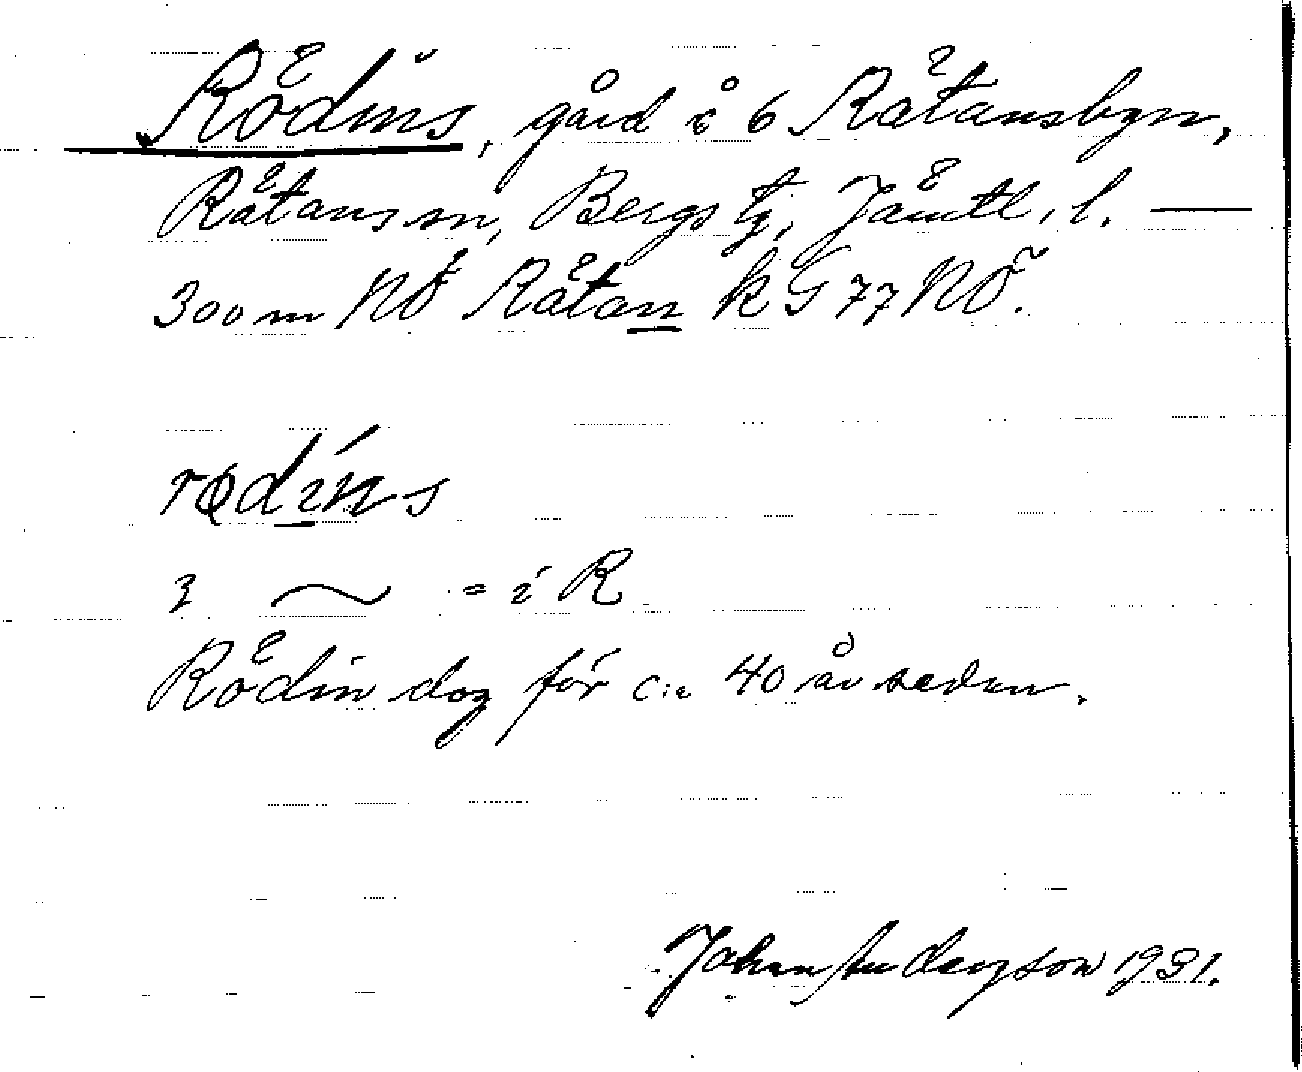 Rödins, gård i 6 Rätansbyn,
Rätans sn, Bergs tg, Jämtl. l. —
300 m NÖ Rätan k G 77 NÖ.
rødíns
i ~ = i R
Rödin dog för c:a 40 år sedan.
Johan Anderzson 1931.